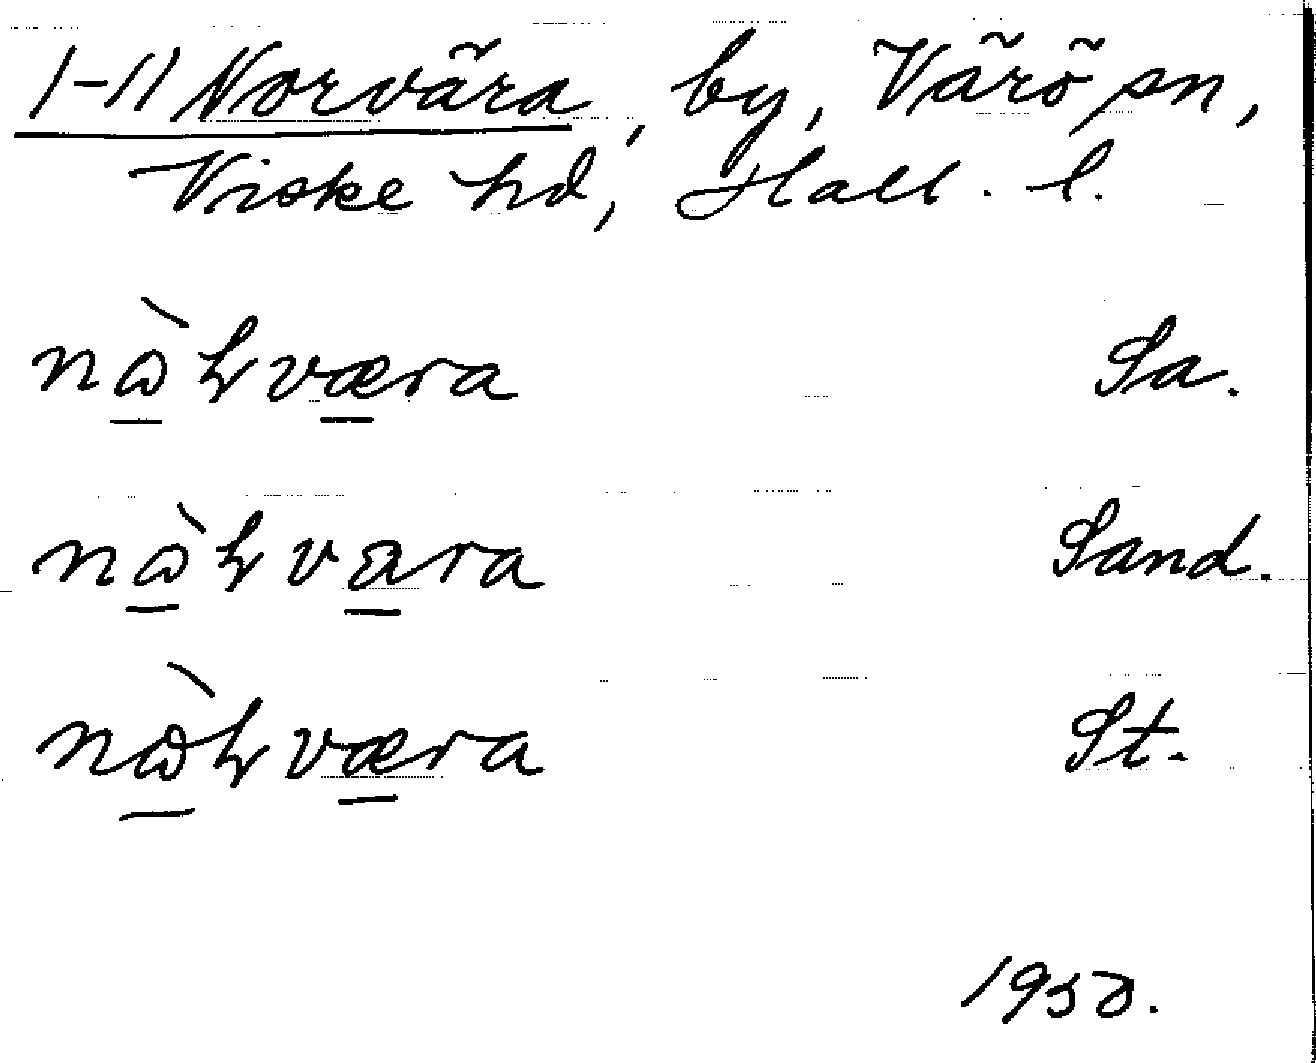 1-11 Norvära, by, Värö sn,
Viske hd, Hall. l.
nὼꝛværa Sa.
nὼꝛvara Sand.
nὼꝛværa St.
1950.